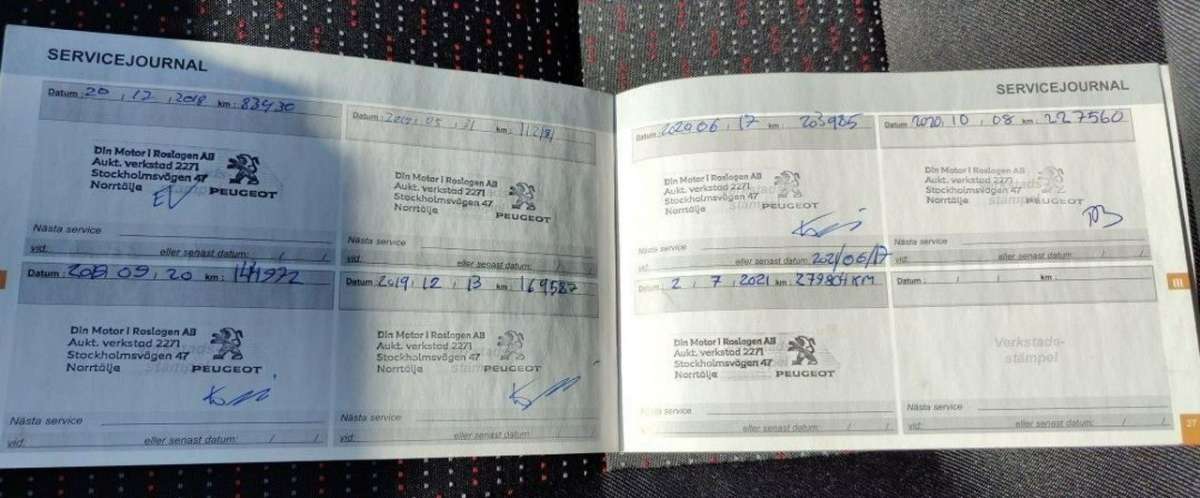 SERVICEJOURNAL
Datum: 20, 12, 2018 km: 83430
Din Motor i Roslagen AB
Aukt. verkstad 2271
Stockholmsvägen 47
Norrtälje
PEUGEOT
Nästa service
vid: eller senast datum: / /
Datum: 2019, 05, 31 km:
Din Motor i Roslagen AB
Aukt. verkstad 2271
Stockholmsvägen 47
Norrtälje
PEUGEOT
Nästa service
vid: eller senast datum: / /
Datum: 2019, 09, 20 km:
Din Motor i Roslagen AB
Aukt. verkstad 2271
Stockholmsvägen 47
Norrtälje
PEUGEOT
Nästa service
vid: eller senast datum: / /
Datum: 2019, 12, 13 km: 169587
Din Motor i Roslagen AB
Aukt. verkstad 2271
Stockholmsvägen 47
Norrtälje
PEUGEOT
Nästa service
vid: eller senast datum: / /
SERVICEJOURNAL
Datum: 2020 06, 17 km: 203985
Din Motor i Roslagen AB
Aukt. verkstad 2271
Stockholmsvägen 47
Norrtälje
PEUGEOT
Nästa service
vid: eller senast datum: 2021/06/17
Datum: 2020, 10, 08 km: 227560
Din Motor i Roslagen AB
Aukt. verkstad 2271
Stockholmsvägen 47
Norrtälje
PEUGEOT
Nästa service
vid: eller senast datum: / /
Datum: 2, 7, 2021 km: 279804 KM
Din Motor i Roslagen AB
Aukt. verkstad 2271
Stockholmsvägen 47
Norrtälje
PEUGEOT
Nästa service
vid: eller senast datum: / /
Datum: / / km:
Verkstads-
stämpel
Nästa service
vid: eller senast datum: / /
III
27